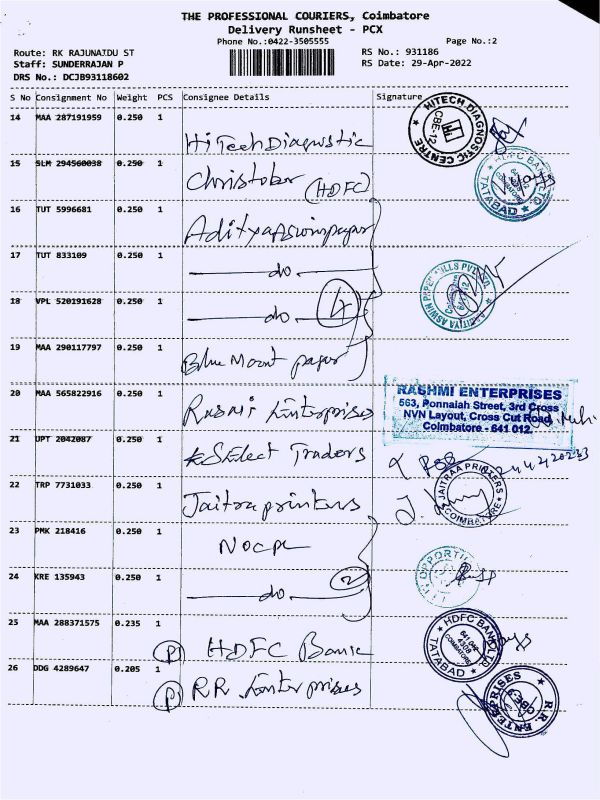 THE PROFESSIONAL COURIERS, Coimbatore
Delivery Runsheet - PCX
Phone No.:0422-3505555
Page No.:2
Route: RK RAJUNAIDU ST
RS No.: 931186
Staff: SUNDERRAJAN P
RS Date: 29-Apr-2022
DRS No.: DCJB93118602
S No Consignment No Weight PCS Consignee Details Signature
14 MAA 287191959 0.250 1 HiTech Diagnostic
HITECH DIAGNOSTIC CENTRE CBE-12
15 SLM 294560038 0.250 1 Christober (HDFC)
HDFC BANK LTD TATABAD
16 TUT 5996681 0.250 1 Aditya Aswin paper
17 TUT 833109 0.250 1 do
AADITIYA ASWIN PAPER MILLS PVT LTD
18 VPL 520191628 0.250 1 do 4
19 MAA 290117797 0.250 1 Blue Mount paper
20 MAA 565822916 0.250 1 Rasmi Enterprises
RASHMI ENTERPRISES
563, Ponnaiah Street, 3rd Cross
NVN Layout, Cross Cut Road,
Coimbatore - 641 012.
21 UPT 2042087 0.250 1 Select Traders
22 TRP 7731033 0.250 1 Jaitra printers
JAITRAA PRINTERS COIMBATORE
23 PMK 218416 0.250 1
24 KRE 135943 0.250 1 do 2
25 MAA 288371575 0.235 1 P HDFC Bank
HDFC BANK LTD 641 012 COIMBATORE TATABAD
26 DDG 4289647 0.205 1 P RR Enterprises
R.R. ENTERPRISES